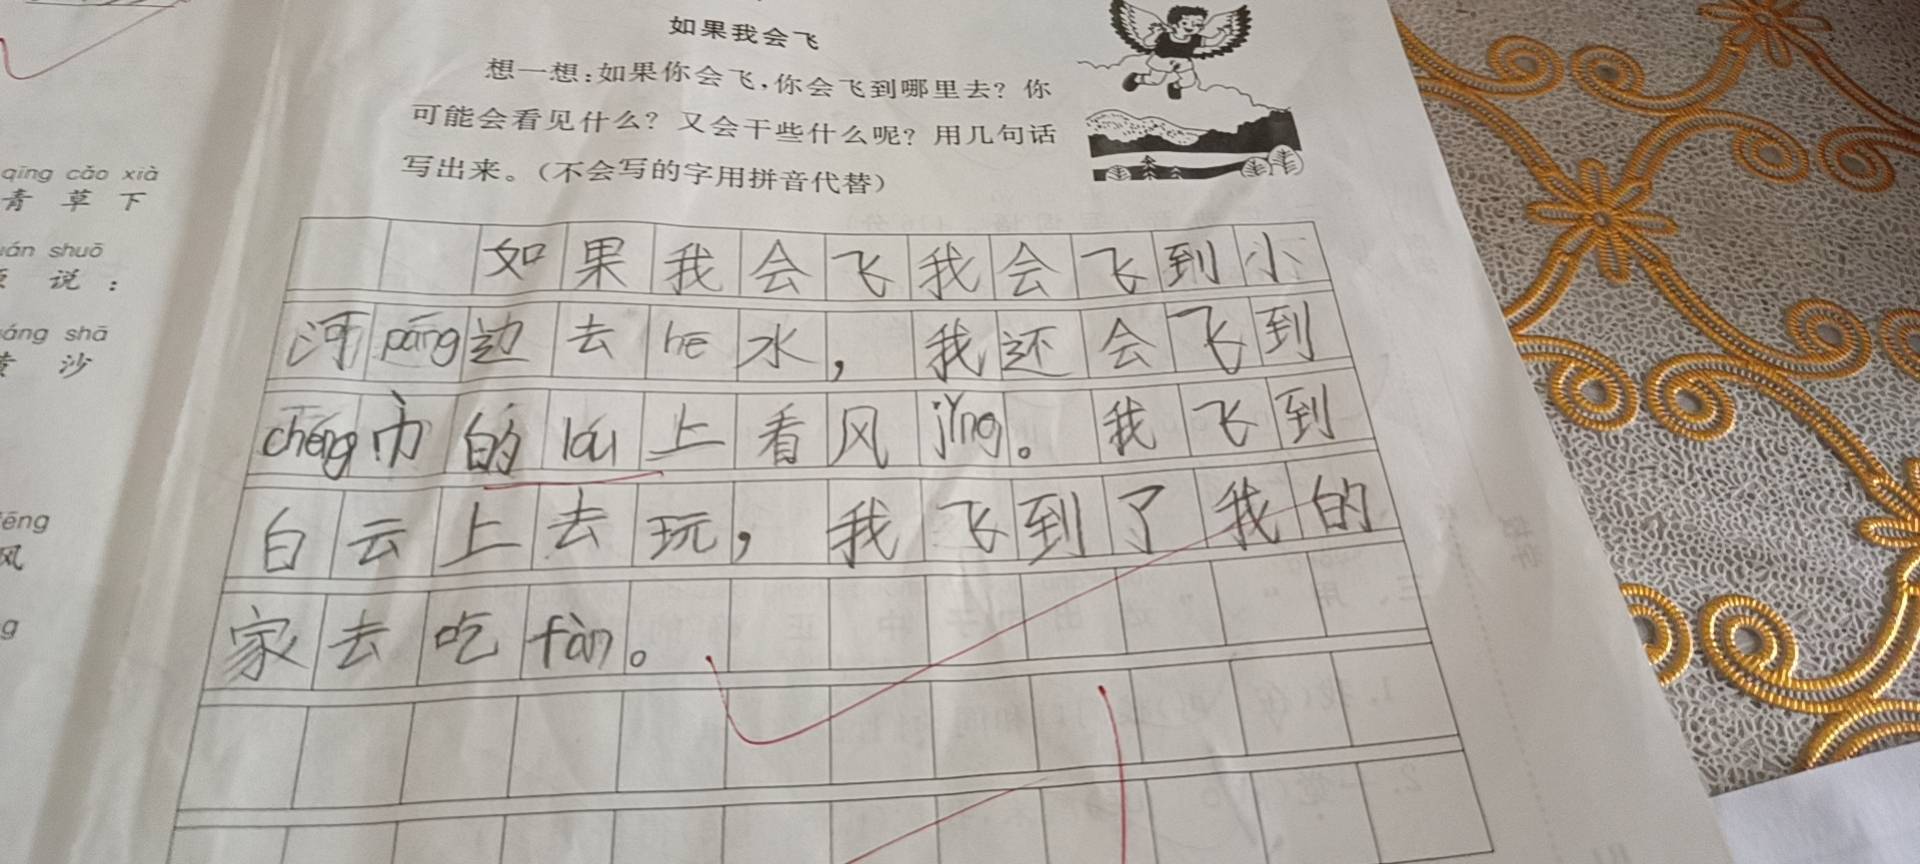 如果我会飞
想一想：如果你会飞，你会飞到哪里去？你
可能会看见什么？又会干些什么呢？用几句话
写出来。（不会写的字用拼音代替）
qīng cǎo xià
青 草 下
shuō
说：
shā
沙
风
如果我会飞我会飞到小
河pāng边去hē水，我还会飞到
chéng巾的lóu上看风jǐng。我飞到
白云上去玩，我飞到了我的
家去吃fàn。